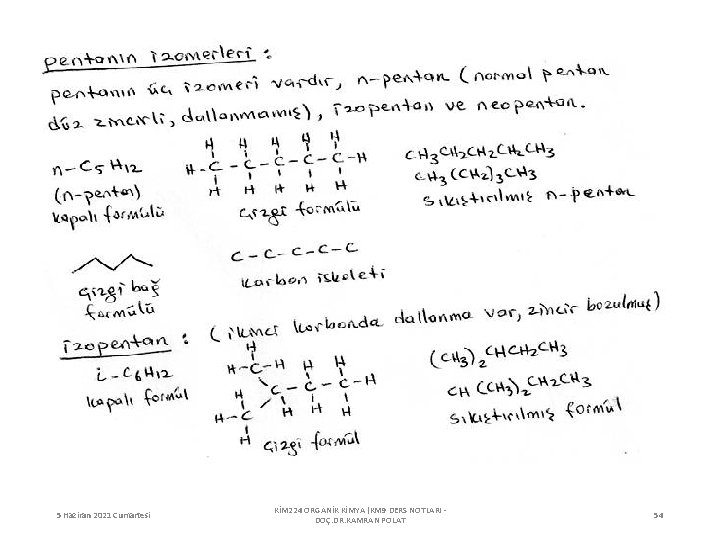 pentanın izomerleri :
pentanın üç izomeri vardır, n-pentan (normal pentan
düz zincirli, dallanmamış), izopentan ve neopentan.
n-C5H12
(n-pentan)
kapalı formülü
H H H H H
H-C-C-C-C-C-H
H H H H H
Çizgi formülü
CH3CH2CH2CH2CH3
CH3(CH2)3CH3
Sıkıştırılmış n-pentan
Çizgi bağ
formülü
C-C-C-C-C
Karbon iskeleti
izopentan : (ikinci karbonda dallanma var, zincir bozulmuş)
i-C6H12
kapalı formül
H
H-C-H H H
H C-C-C-H
H-C H H H
H
Çizgi formül
(CH3)2CHCH2CH3
CH(CH3)2CH2CH3
Sıkıştırılmış formül
5 Haziran 2021 Cumartesi
KİM224 ORGANİK KİMYA (KM9 DERS NOTLARI -
DOÇ.DR.KAMRAN POLAT
54